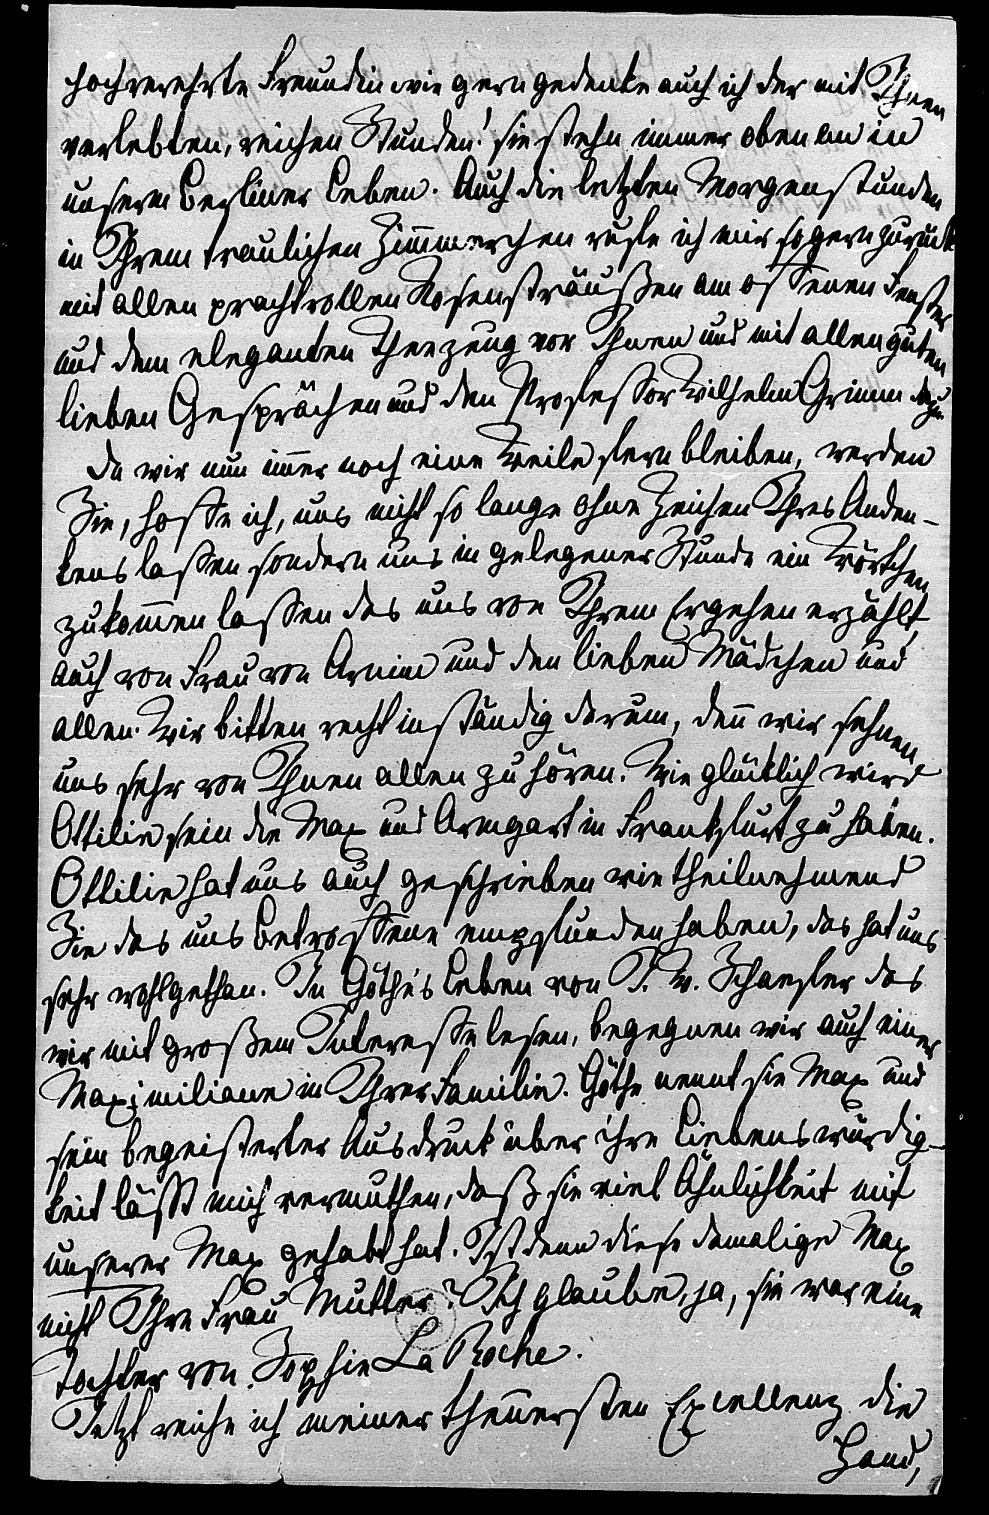 hochverehrte Freundin wie gern gedenke auch ich der mit Ihnen
verlebten, reichen Stunden! sie stehn immer oben an in
unserm Berliner Leben. Auch die letzten Morgenstunden
in Ihrem traulichen Zimmerchen rufe ich mir so gern zurück
mit allen prachtvollen Rosensträußen am offenen Fenster
und dem eleganten Theezeug vor Ihnen und mit allen guten
lieben Gesprächen und den Professor Wilhelm Grimm dazu
Da wir nun immer noch eine Weile fern bleiben, werden
Sie, hoffe ich, uns nicht so lange ohne Zeichen Ihres Anden-
kens lassen sondern uns in gelegener Stunde ein Wörtchen
zukommen lassen das uns von Ihrem Ergehen erzählt,
auch von Frau von Arnim und den lieben Mädchen und
allen. Wir bitten recht inständig darum, denn wir sehnen
uns sehr von Ihnen allen zu hören. Wie glücklich wird
Ottilie sein die Max und Armgart in Frankfurt zu haben.
Ottilie hat uns auch geschrieben wie theilnehmend
Sie das uns Betroffene empfunden haben, das hat uns
sehr wohlgethan. In Göthe's Leben von J. W. Schaefer das
wir mit großem Interesse lesen, begegnen wir auch einer
Maximiliane in Ihrer Familie. Göthe nennt sie Max und
sein begeisterter Ausdruck über ihre Liebenswürdig-
keit läßt mich vermuthen, daß sie viel Ähnlichkeit mit
unserer Max gehabt hat. Ist denn diese damalige Max
nicht Ihre Frau Mutter? Ich glaube, ja, sie war eine
Tochter von Sophie La Roche.
Jetzt reiche ich meiner theuersten Excellenz die
Hand,